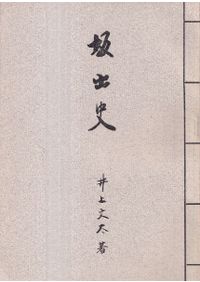 坂出史
井上文太著